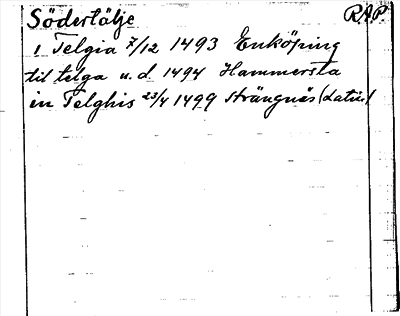 Södertälje RAP.
i Telgia 7/12 1493 Enköping
til telga u.d. 1494 Hammersta
in Telghis 23/4 1499 Strängnäs (Latin)